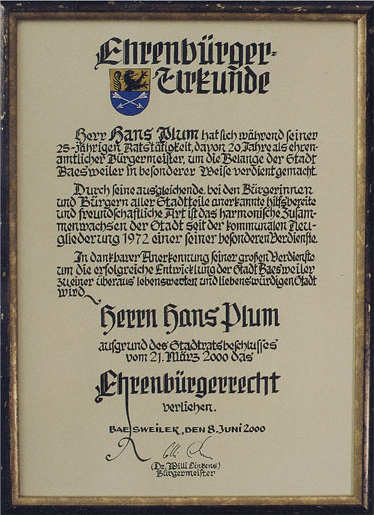 Ehrenbürger-
Urkunde
Herr Hans Plum hat sich während seiner
25-jährigen Ratstätigkeit, davon 20 Jahre als ehren-
amtlicher Bürgermeister, um die Belange der Stadt
Baesweiler in besonderer Weise verdient gemacht.
Durch seine ausgleichende, bei den Bürgerinnen
und Bürgern aller Stadtteile anerkannte hilfsbereite
und freundschaftliche Art ist das harmonische Zusam-
menwachsen der Stadt seit der kommunalen Neu-
gliederung 1972 einer seiner besonderen Verdienste.
In dankbarer Anerkennung seiner großen Verdienste
um die erfolgreiche Entwicklung der Stadt Baesweiler
zu einer überaus lebenswerten und liebenswürdigen Stadt
wird
Herrn Hans Plum
aufgrund des Stadtratsbeschlusses
vom 21. März 2000 das
Ehrenbürgerrecht
verliehen.
BAESWEILER, DEN 8. JUNI 2000
(Dr. Willi Linkens)
Bürgermeister